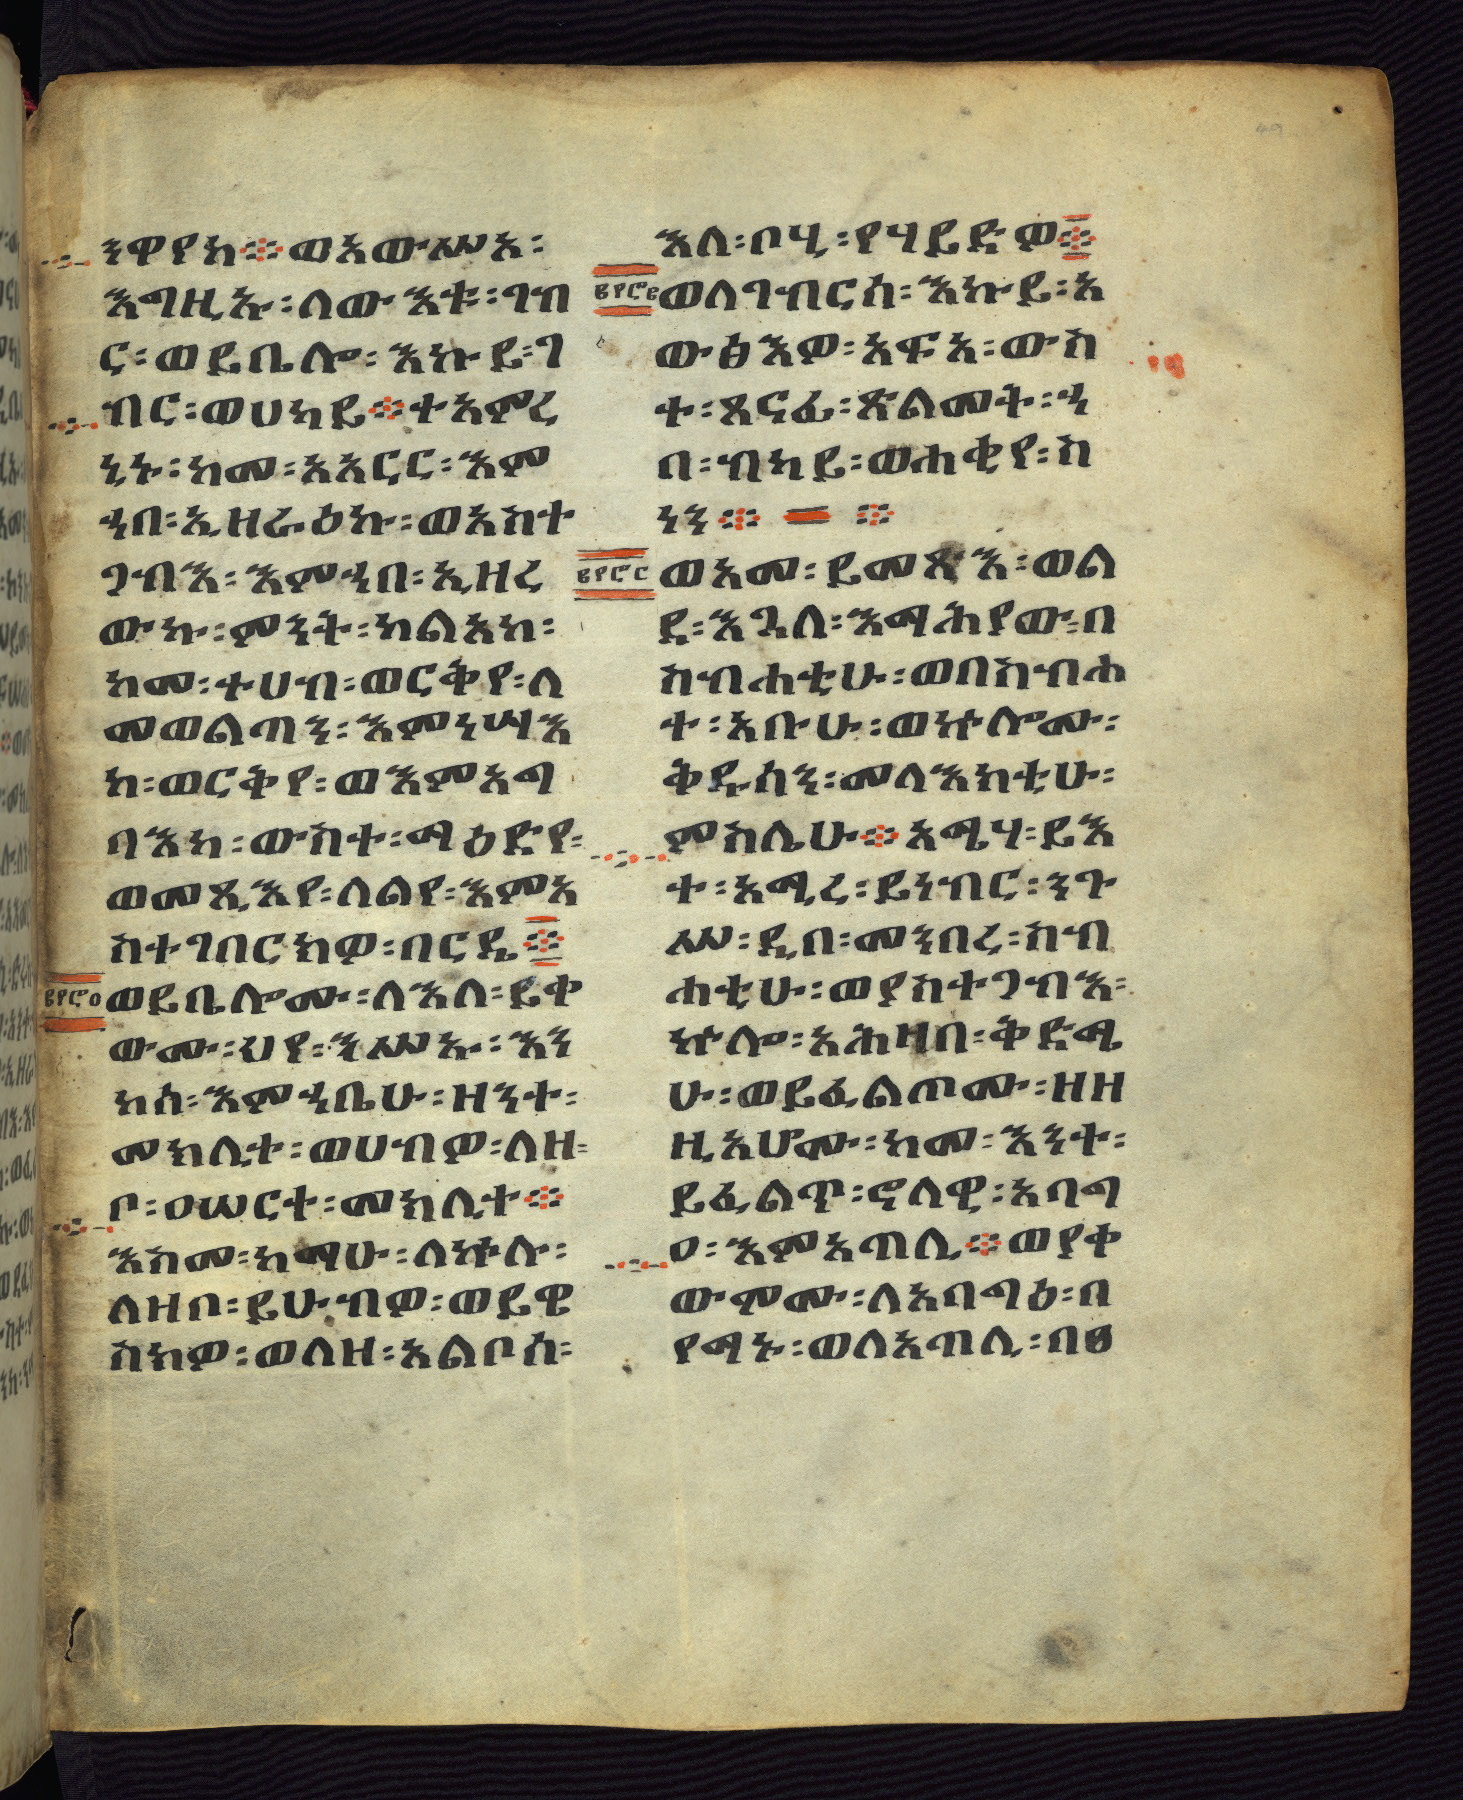 ንዋየከ ። ወአውሥአ ፡
እግዚኡ ፡ ለውእቱ ፡ ገብ
ር ፡ ወይቤሎ ፡ እኩይ ፡ ገ
ብር ፡ ወሀካይ ። ተአምረ
ኒኑ ፡ ከመ ፡ አአርር ፡ እም
ኀበ ፡ ኢዘራዕኩ ፡ ወአስተ
ጋብእ ፡ እምኀበ ፡ ኢዘረ
ውኩ ፡ ምንት ፡ ከልአከ ፡
ከመ ፡ ተሀብ ፡ ወርቅየ ፡ ለ
መወልጣን ፡ እምነሣእ
ከ ፡ ወርቅየ ፡ ወእምአግ
ባእከ ፡ ውስተ ፡ ማዕድየ ፡
ወመጺእየ ፡ ለልየ ፡ እምአ
ስተገበርክዎ ፡ በርዴ ።
ወይቤሎሙ ፡ ለእለ ፡ ይቀ
ውሙ ፡ ህየ ፡ ንሥኡ ፡ እን
ከሰ ፡ እምኀቤሁ ፡ ዘንተ ፡
መክሊተ ፡ ወሀብዎ ፡ ለዘ ፡
ቦ ፡ ዐሠርተ ፡ መክሊተ ።
እስመ ፡ ከማሁ ፡ ለኵሉ ፡
ለዘቦ ፡ ይሁብዎ ፡ ወይዌ
ስክዎ ፡ ወለዘ ፡ አልቦሰ ፡
፪፻፸፬
እለ ፡ ቦሂ ፡ የሃይድዎ ።
፪፻፸፪
ወለገብርሰ ፡ እኩይ ፡ አ
ውፅእዎ ፡ አፍአ ፡ ውስ
ተ ፡ ጸናፊ ፡ ጽልመት ፡ ኀ
በ ፡ ብካይ ፡ ወሐቂየ ፡ ስ
ነን ።
፪፻፸፫
ወአመ ፡ ይመጽእ ፡ ወል
ደ ፡ እጓለ ፡ እማሕያው ፡ በ
ስብሐቲሁ ፡ ወበስብሐ
ተ ፡ አቡሁ ፡ ወኵሎሙ ፡
ቅዱሳን ፡ መላእክቲሁ ፡
ምስሌሁ ። አሜሃ ፡ ይእ
ተ ፡ አሚረ ፡ ይነብር ፡ ንጉ
ሥ ፡ ዲበ ፡ መንበረ ፡ ስብ
ሐቲሁ ፡ ወያስተጋብእ ፡
ኵሎ ፡ አሕዛበ ፡ ቅድሜ
ሁ ፡ ወይፈልጦሙ ፡ ዘዘ
ዚአሆሙ ፡ ከመ ፡ እንተ ፡
ይፈልጥ ፡ ኖላዊ ፡ አባግ
ዐ ፡ እምአጣሊ ። ወያቀ
ውሞሙ ፡ ለአባግዕ ፡ በ
የማኑ ፡ ወለአጣሊ ፡ በፀ